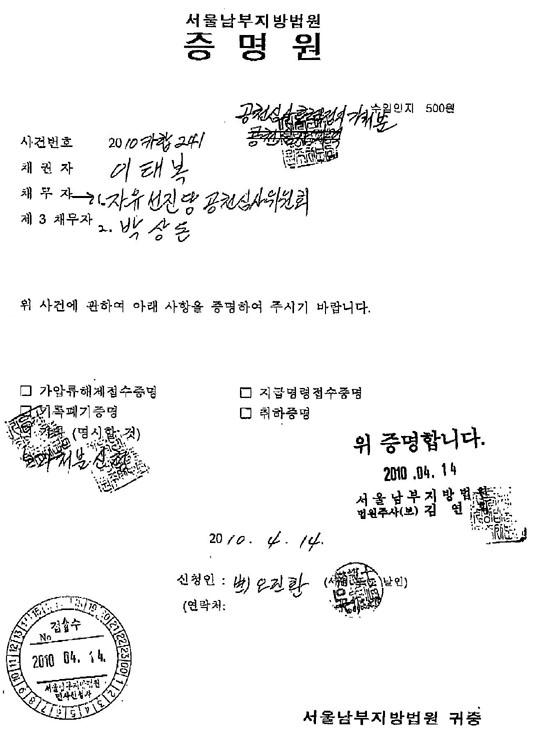 서울남부지방법원
증명원
공천심사 가처분
수입인지 500원
사건번호 2010카합241
채권자 이태복
채무자→ 1. 자유선진당 공천심사위원회
제3채무자 2. 박상돈
위 사건에 관하여 아래 사항을 증명하여 주시기 바랍니다.
□ 가압류해제접수증명 □ 지급명령접수증명
□ 기록폐기증명 □ 취하증명
(명시할 것)
가처분신청
위 증명합니다.
2010 .04. 14
서울남부지방법원
법원주사(보) 김연
2010. 4. 14.
신청인 : 변) 오진환 날인)
(연락처:
접수
No
2010 04. 14.
서울남부지방법원
민사신청과
서울남부지방법원 귀중